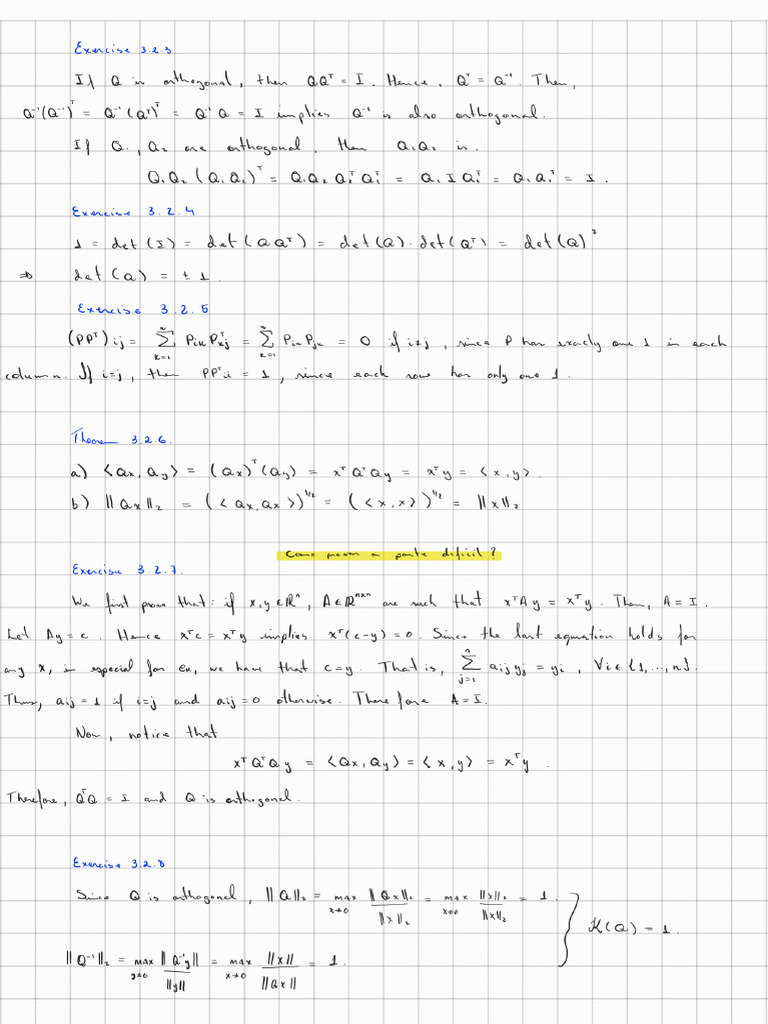 Exercise 3.2.3
If Q is orthogonal, then QQᵀ = I. Hence, Qᵀ = Q⁻¹. Then,
Q⁻¹(Q⁻¹)ᵀ = Q⁻¹(Qᵀ)ᵀ = Q⁻¹Q = I implies Q⁻¹ is also orthogonal.
If Q₁, Q₂ are orthogonal, then Q₁Q₂ is.
Q₁Q₂(Q₁Q₂)ᵀ = Q₁Q₂Q₂ᵀQ₁ᵀ = Q₁IQ₁ᵀ = Q₁Q₁ᵀ = I.
Exercise 3.2.4
1 = det(I) = det(QQᵀ) = det(Q)·det(Qᵀ) = det(Q)²
⇒ det(Q) = ±1.
Exercise 3.2.5
(PPᵀ)ij = Σₖ₌₁ⁿ Pik Pᵀkj = Σₖ₌₁ⁿ Pik Pjk = 0 if i≠j, since P has exacly one 1 in each
column. If i=j, then PPᵀii = 1, since each row has only one 1.
Theorem 3.2.6.
a) <Qx, Qy> = (Qx)ᵀ(Qy) = xᵀQᵀQy = xᵀy = <x, y>.
b) ||Qx||₂ = (<Qx, Qx>)^1/2 = (<x, x>)^1/2 = ||x||₂
Como provar a parte dificil?
Exercise 3.2.7.
We first prove that: if x, y ∈ ℝⁿ, A ∈ ℝⁿˣⁿ are such that xᵀAy = xᵀy. Then, A = I.
Let Ay = c. Hence xᵀc = xᵀy implies xᵀ(c-y) = 0. Since the last equation holds for
any x, in especial for ek, we have that c=y. That is, Σⱼ₌₁ⁿ aij yj = yi, ∀i ∈ {1, ..., n}.
Thus, aij = 1 if i=j and aij = 0 otherwise. Therefore A = I.
Now, notice that
xᵀQᵀQy = <Qx, Qy> = <x, y> = xᵀy.
Therefore, QᵀQ = I and Q is orthogonal.
Exercise 3.2.8
Since Q is orthogonal, ||Q||₂ = max x≠0 ||Qx||₂ / ||x||₂ = max x≠0 ||x||₂ / ||x||₂ = 1.
K(Q) = 1.
||Q⁻¹||₂ = max y≠0 ||Q⁻¹y|| / ||y|| = max x≠0 ||x|| / ||Qx|| = 1.